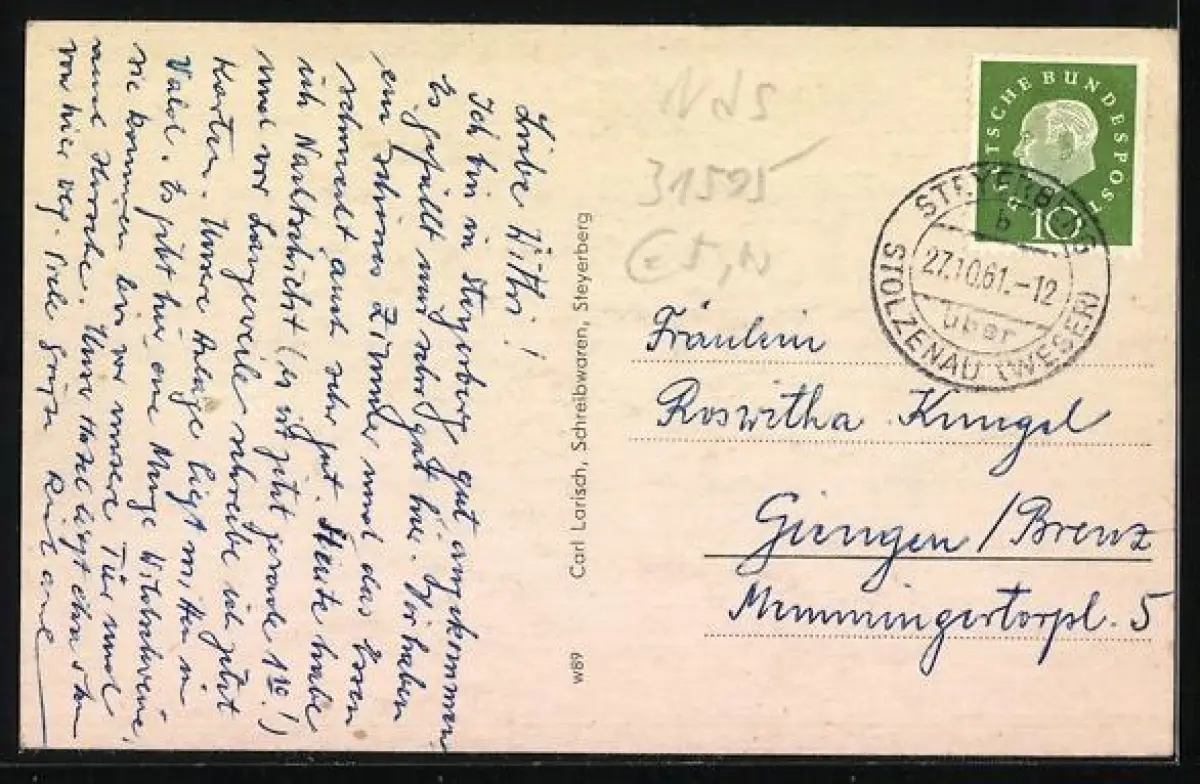 Liebe Withi!
Ich bin in Steyerberg gut angekommen.
Es gefällt mir sehr gut hier. Wir haben
ein schönes Zimmer und das Essen
schmeckt auch sehr gut. Heute habe
ich Nachtschicht (es ist jetzt gerade 1 10!)
und vor Langeweile schreibe ich jetzt
Karten. Unsere Anlage liegt mitten in
Wald. Es gibt hier eine Menge Wildschweine,
sie kommen bis vor unsere Tür und
auch Hirsche. Unser Hotel liegt etwa 5 km
von hier weg. Viele Grüße
Carl Larisch, Schreibwaren, Steyerberg
w89
Nds
31595
€ 5,-
DEUTSCHE BUNDESPOST
10
STEYERBERG
b
27.10.61.-12
über
STOLZENAU (WESER)
Fräulein
Roswitha Kungel
Giengen/Brenz
Memmingertorpl. 5